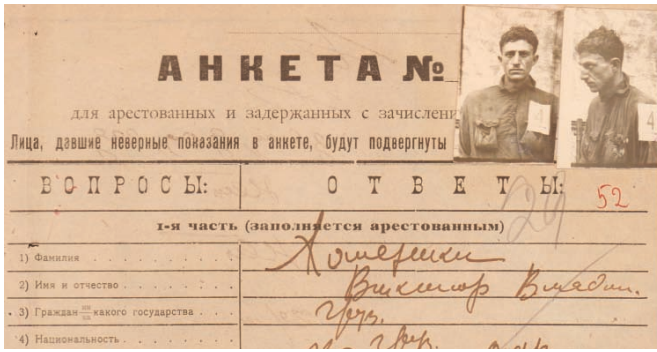 АНКЕТА №
для арестованных и задержанных с зачислени
Лица, давшие неверные показания в анкете, будут подвергнуты
ВОПРОСЫ: ОТВЕТЫ:
52
29
1-я часть (заполняется арестованным)
1) Фамилия
2) Имя и отчество Виктор Владим.
3) Граждан ин/ка какого государства Груз.
4) Национальность
4